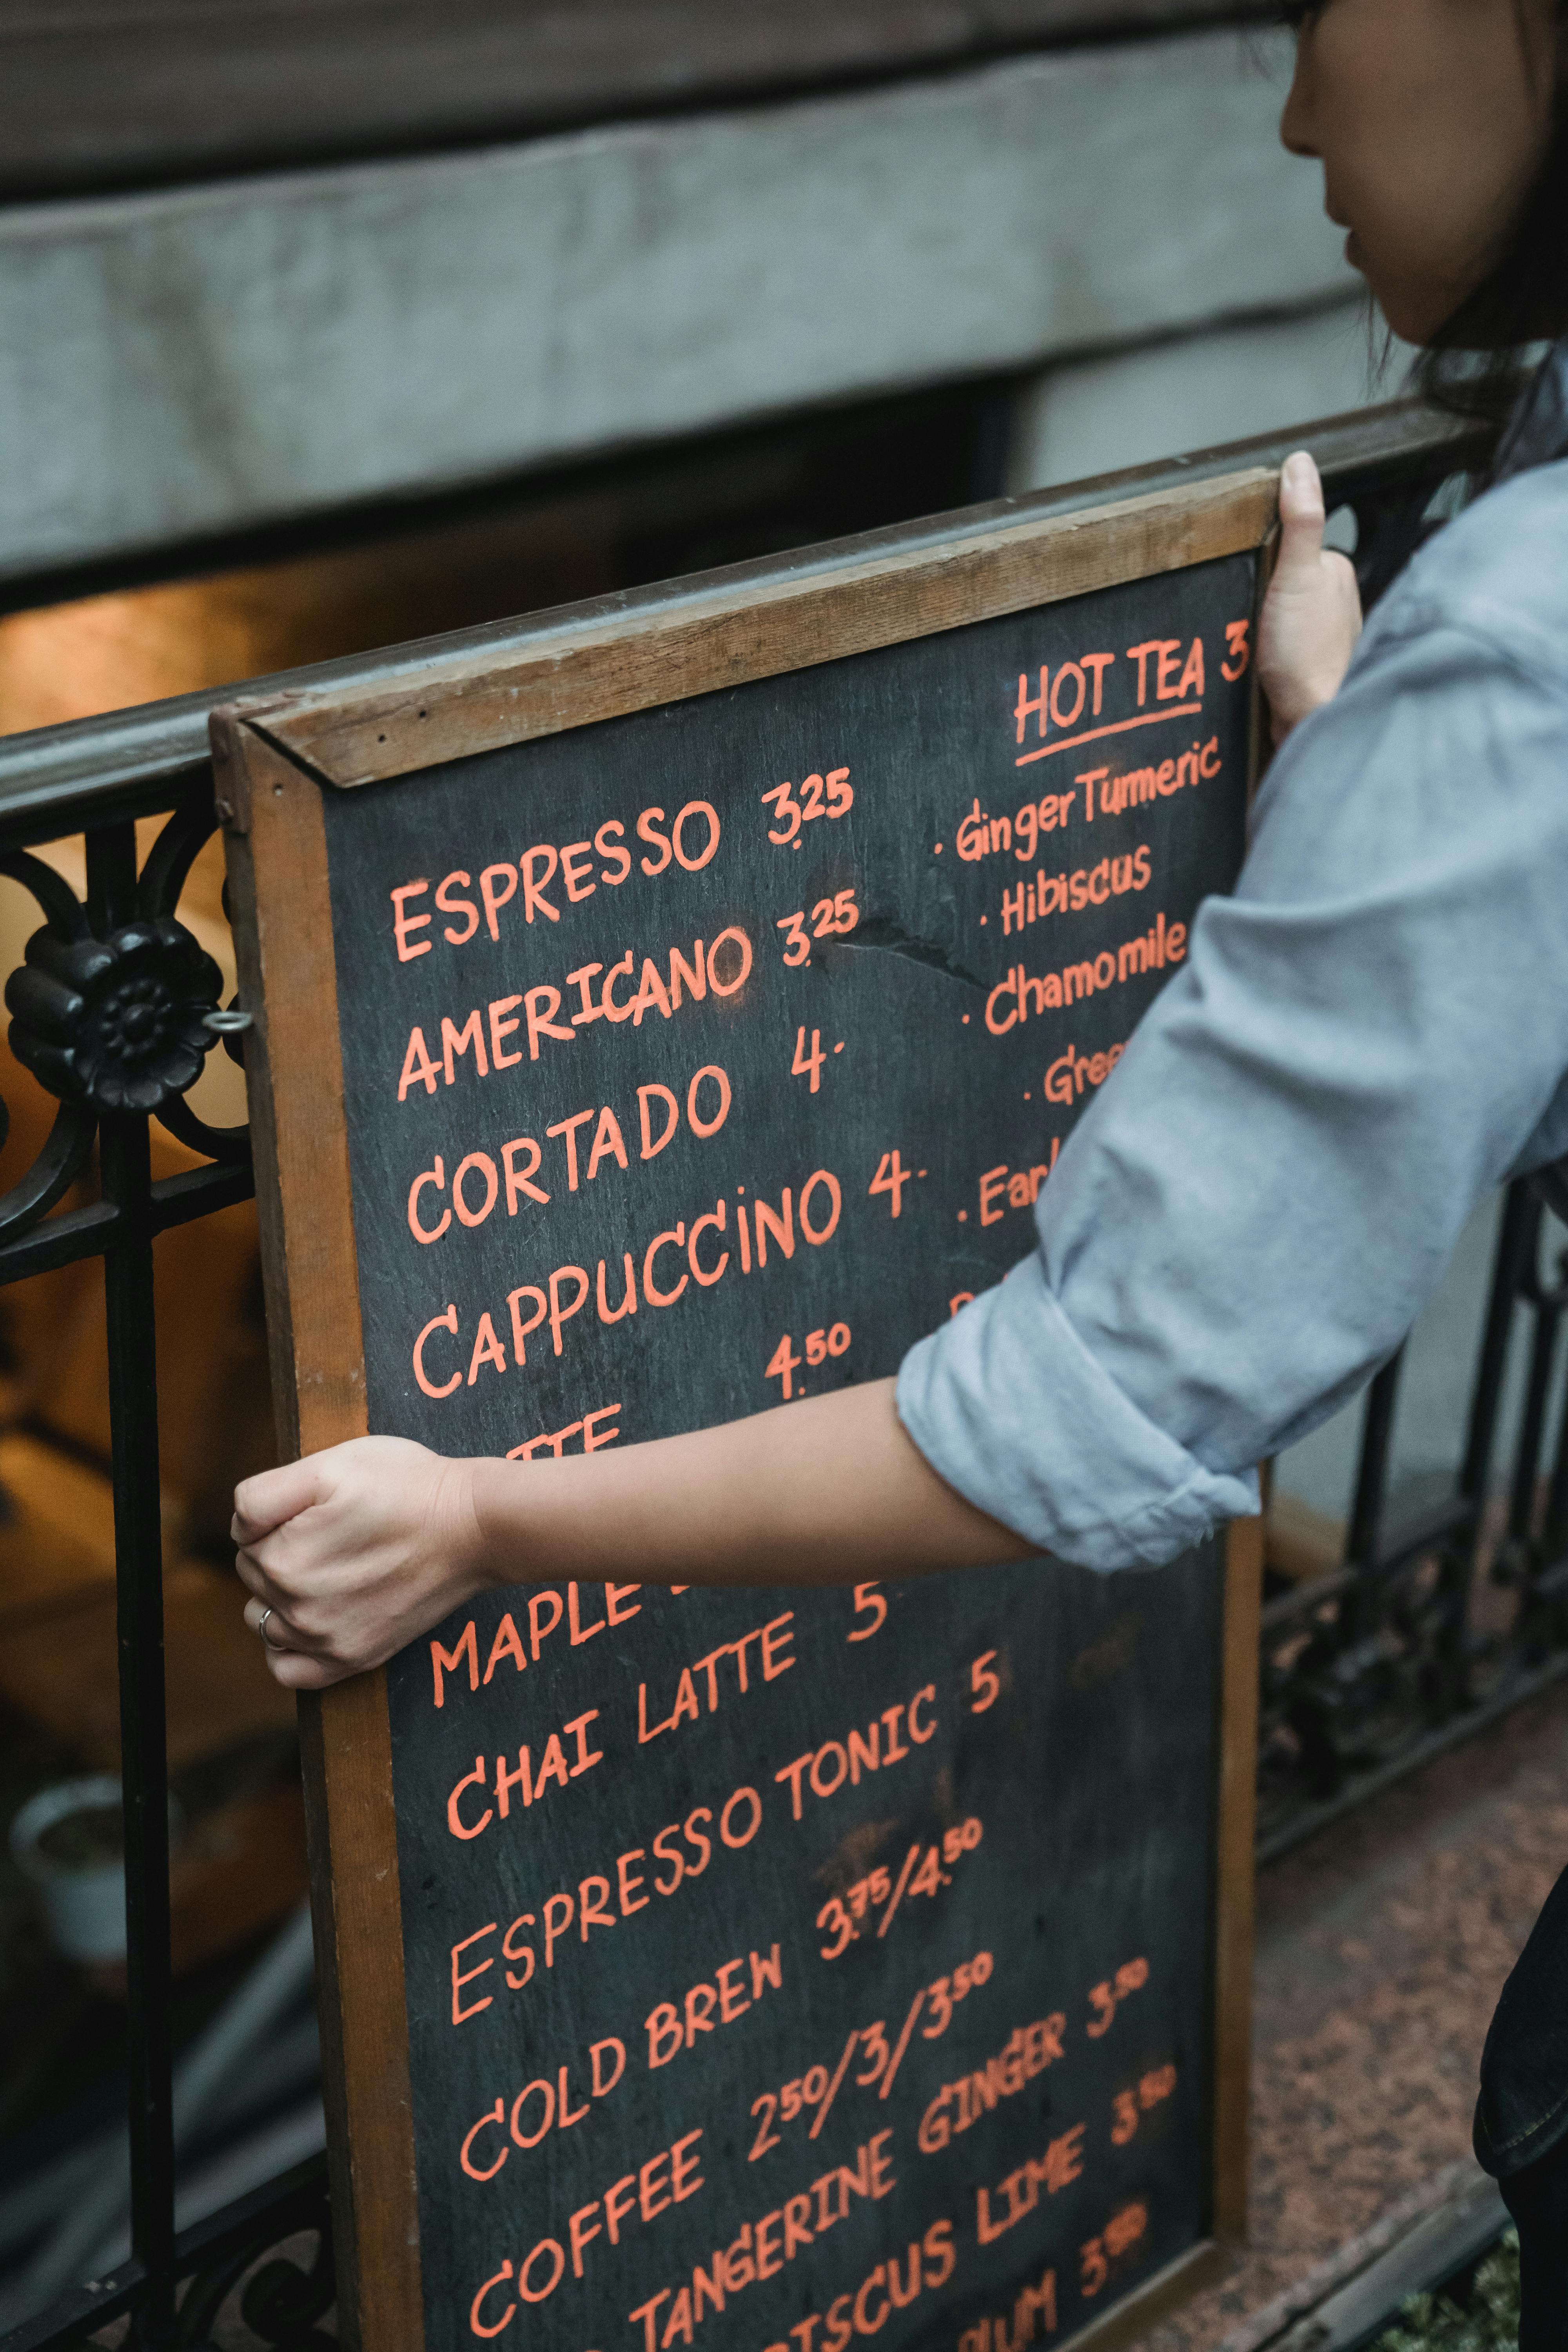 ESPRESSO 3.25
AMERICANO 3.25
CORTADO 4-
CAPPUCCINO 4-
4.50
MAPLE
CHAI LATTE 5-
ESPRESSO TONIC 5
COLD BREW 3.75/4.50
COFFEE 2.50/3/3.50
TANGERINE GINGER 3.50
LIME 3.50
3.50
HOT TEA 3
· Ginger Turmeric
· Hibiscus
· Chamomile